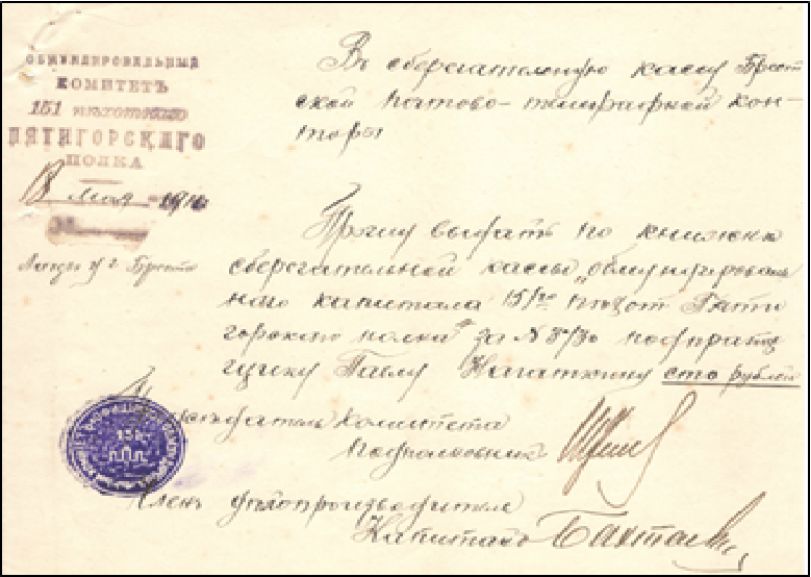 ОБМУНДИРОВАЛЬНЫЙ
КОМИТЕТЪ
151 ПѢХОТНАГО
ПЯТИГОРСКАГО
ПОЛКА
18 мая 1910
Въ сберегательную кассу Брест
ской почтово-телеграфной кон
торы
Прошу выдать по книжкѣ
сберегательной кассы „обмундироваль
наго капитала 151го пѣхот Пяти
горскаго полка" за № подпрапор
щику Павлу сто рублей
Предсѣдатель Комитета
Подполковникъ
Членъ дѣлопроизводитель
Капитанъ
151